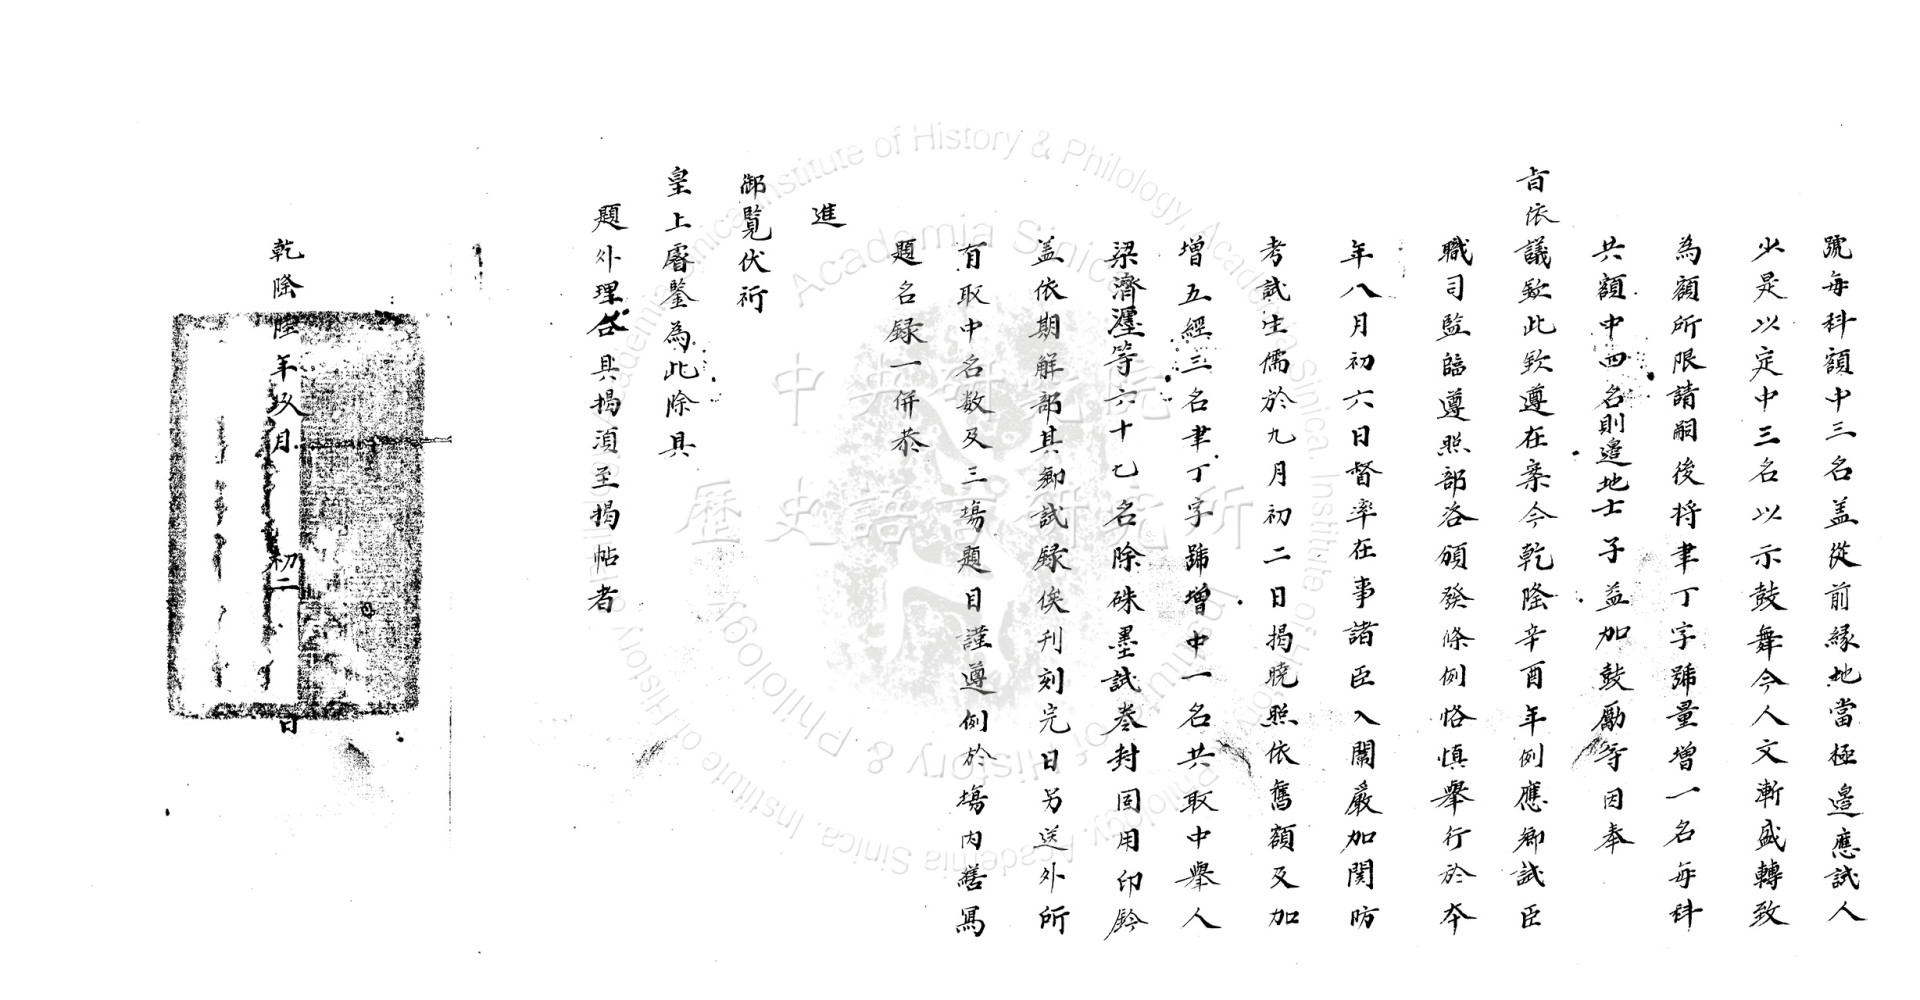 號每科額中三名盖從前緣地當極邉應試人
少是以定中三名以示鼓舞今人文漸盛轉致
為額所限請嗣後将聿丁字號量增一名每科
共額中四名則邉地士子益加鼓勵等因奉
旨依議欽此欽遵在案今乾隆辛酉年例應鄉試臣
職司監臨遵照部咨頒發條例恪慎舉行於本
年八月初六日督率在事諸臣入闈嚴加関防
考試生儒於九月初二日揭曉照依舊額及加
增五經三名聿丁字號增中一名共取中舉人
梁濟瀍等六十七名除硃墨試卷封固用印鈐
盖依期解部其鄉試録俟刊刻完日另送外所
有取中名数及三塲題目謹遵例於塲内繕寫
題名録一併恭
進
御覧伏祈
皇上睿鑒為此除具
題外理合具揭須至揭帖者
乾隆陸年玖月初二日
中央研究院
歷史語言研究所
Academia Sinica, Institute of History & Philology, Academia Sinica, Institute of History & Philology